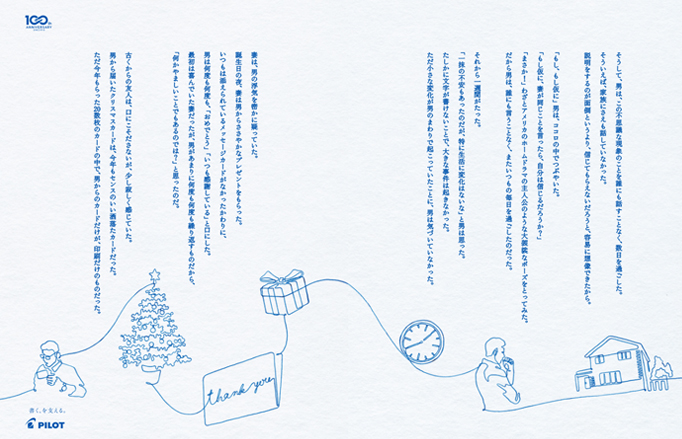 そうして、男は、この不思議な現象のことを誰にも話すことなく、数日を過ごした。
そういえば、家族にさえも話していなかった。
説明をするのが面倒というより、信じてもらえないだろうと、容易に想像できたから。
「もし、もし仮に」男は、ココロの中でつぶやいた。
「もし仮に、妻が同じことを言ったら、自分は信じるだろうか？」
「まさか！」わざとアメリカのホームドラマの主人公のような大袈裟なポーズをとってみた。
だから男は、誰にも言うことなく、またいつもの毎日を過ごしたのだった。
それから一週間がたった。
「一抹の不安もあったのだが、特に生活に変化はないな」と男は思った。
たしかに文字が書けないことで、大きな事件は起きなかった。
ただ小さな変化が男のまわりで起こっていたことに、男は気づいていなかった。
妻は、男の浮気を密かに疑っていた。
誕生日の夜、妻は男からささやかなプレゼントをもらった。
いつもは添えられているメッセージカードがなかったかわりに、
男は何度も何度も、「おめでとう」「いつも感謝している」と口にした。
最初は喜んでいた妻だったが、男があまりに何度も何度も繰り返すものだから、
「何かやましいことでもあるのでは？」と思ったのだ。
古くからの友人は、口にこそださないが、少し寂しく感じていた。
男から届いたクリスマスカードは、今年もセンスのいい洒落たカードだった。
ただ今年もらった20数枚のカードの中で、男からのカードだけが、印刷だけのものだった。
thank you
100th
ANNIVERSARY
書く、を支える。
PILOT